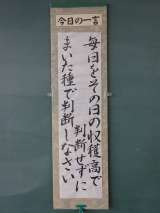 今日の一言
毎日をその日の収穫高で
判断せずに
まいた種で判断しなさい